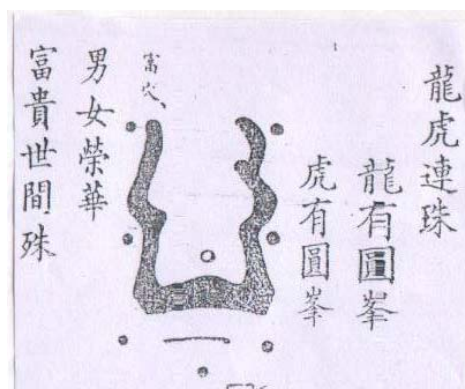 龍虎連珠
龍有圓峯
虎有圓峯
男女榮華
富貴世間殊